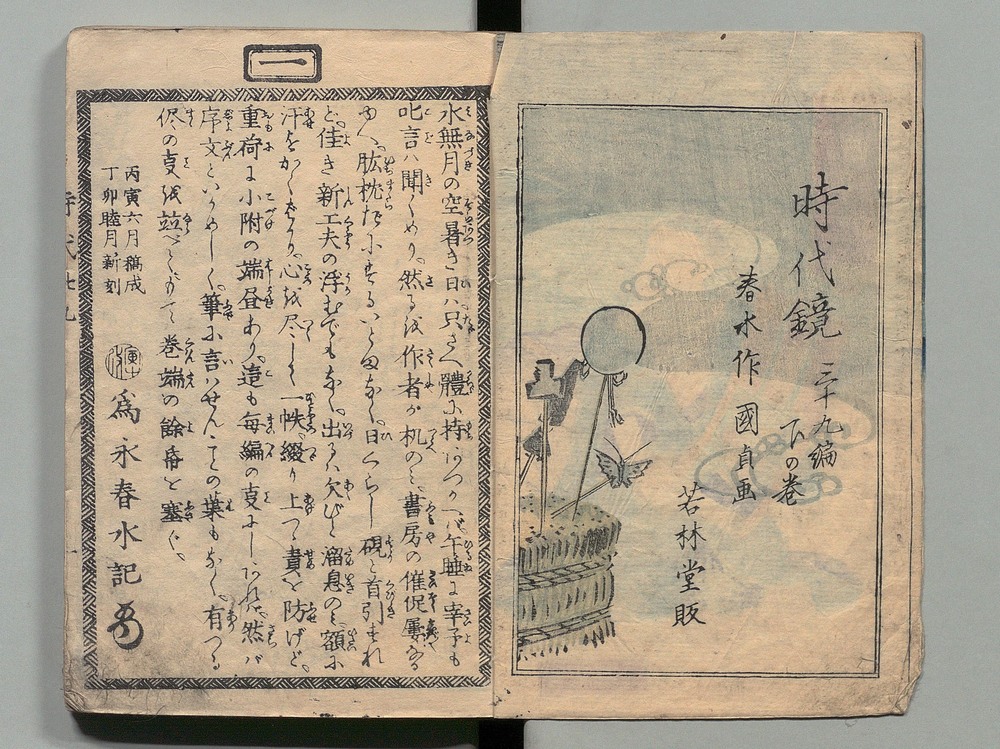 時代鏡 三十九編
下の巻
春水作 國貞画
若林堂販
一
水無月の空暑き日ハ只さへ體に持あつかへバ午睡は宰予も
叱言ハ聞くめり。然るを作者が机のミ、書房の催促屡なる
ゆへ、肱枕だにせずいとまなく、日くらし硯と首引すれ
ど、佳き新工夫の浮むでもなく、出るハ欠びと溜息のミ。額に
汗をかくばかり、心を尽して一帙綴り上つ責を防げど、
重荷に小附の端書あり。這も毎編の事にしあれバ、然バ
序文といかめしく、筆に言ハせんことの葉もなく、有つる
侭の事を並べて巻端の餘帋を塞ぐ。
丙寅六月稿成
丁卯睦月新刻
爲永春水記